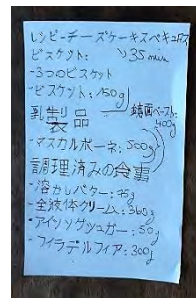 レシピーチーズケーキスペキュロス
ビスケット: 35min
-3つのビスケット
-ビスケット: 150g
乳製品
-マスカルポーネ: 500g
調理済みの食事
-溶かしバター: 75g
-全液体クリーム: 360g
-アイシングシュガー: 50g
-フィラデルフィア: 300g